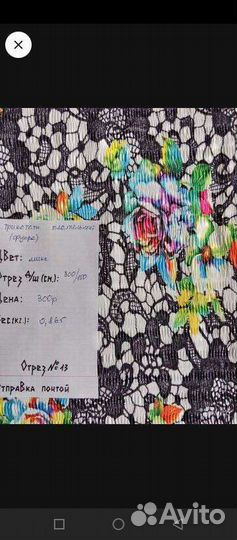 Трикотаж плательный
(фукра)
Цвет: микс
Отрез д/ш(см): 300/150
Цена: 300р
Вес(кг.): 0,865
Отрез № 13
Отправка почтой
Avito